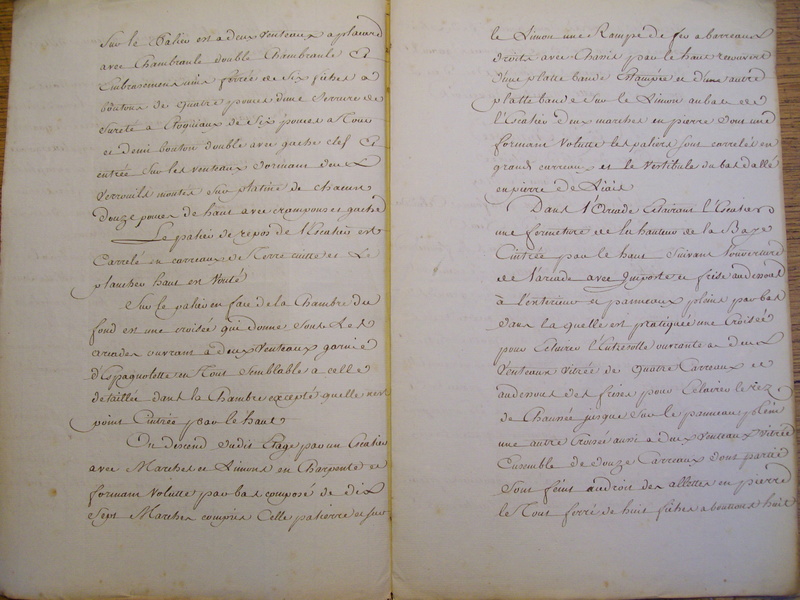 Sur le Palier est a deux Venteaux a placard
avec Chambranle double Chambranle Et
Embrasemens unis ferrée de Six fiches a
boutons de quatre pouces d'une Serrure de
Sureté a Roquiaux de Six pouces a Tour
et demi bouton double avec gache clef Et
entrée Sur les venteaux dormant deux
Verrouils montés Sur platine de chacun
Douze pouces de haut avec crampons et gache
Le palier de repos de l'Escalier est
Carrelé en carreaux de Terre cuitte et Le
plancher haut en Vouté
Sur le palier en face de la Chambre du
fond est une croisée qui donne Sous Les
arcades ouvrant a deux Venteaux garnie
d'Espagnolette en Tout Semblable a celle
detaillée dans la Chambre excepté quelle n'est
point Cintrée par le haut
On descend dudit Etage par un Escalier
avec Marches et Limons en Charpente et
formant Volutte par bas composé de dix
Sept Marches compris Celle palierre et sur
le Limon une Rampe de fer a barreaux
droits avec Chassis par le haut recouvert
d'une platte bande Etampée et d'une autre
platte bande Sur le Limon au bas de
l'Escalier deux marches en pierre dont une
formant Volutte les paliers Sont carrelés en
grands carreaux et le Vestibule du bas dallé
en pierre de Liais
Dans l'Arcade Eclairant l'Escalier
une fermeture de la hauteur de la Baye
Cintrée par le haut Suivant l'ouverture
de l'arcade avec Imposte et frise au dessous
à l'exterieur et panneaux pleins par bas
dans la quelle est pratiquée une Croisée
pour Eclairer l'Entresolle ouvrante a deux
Venteaux vitrée de quatre Carreaux et
au dessous des frises pour Eclairer le rez
de Chaussée jusque Sur le panneau plein
une autre Croisée aussi a deux Venteaux Vitrée
Ensemble de douze Carreaux dont partie
Sont feints au droit des allettes en pierre
le Tout ferré de huit fiches a boutons huit